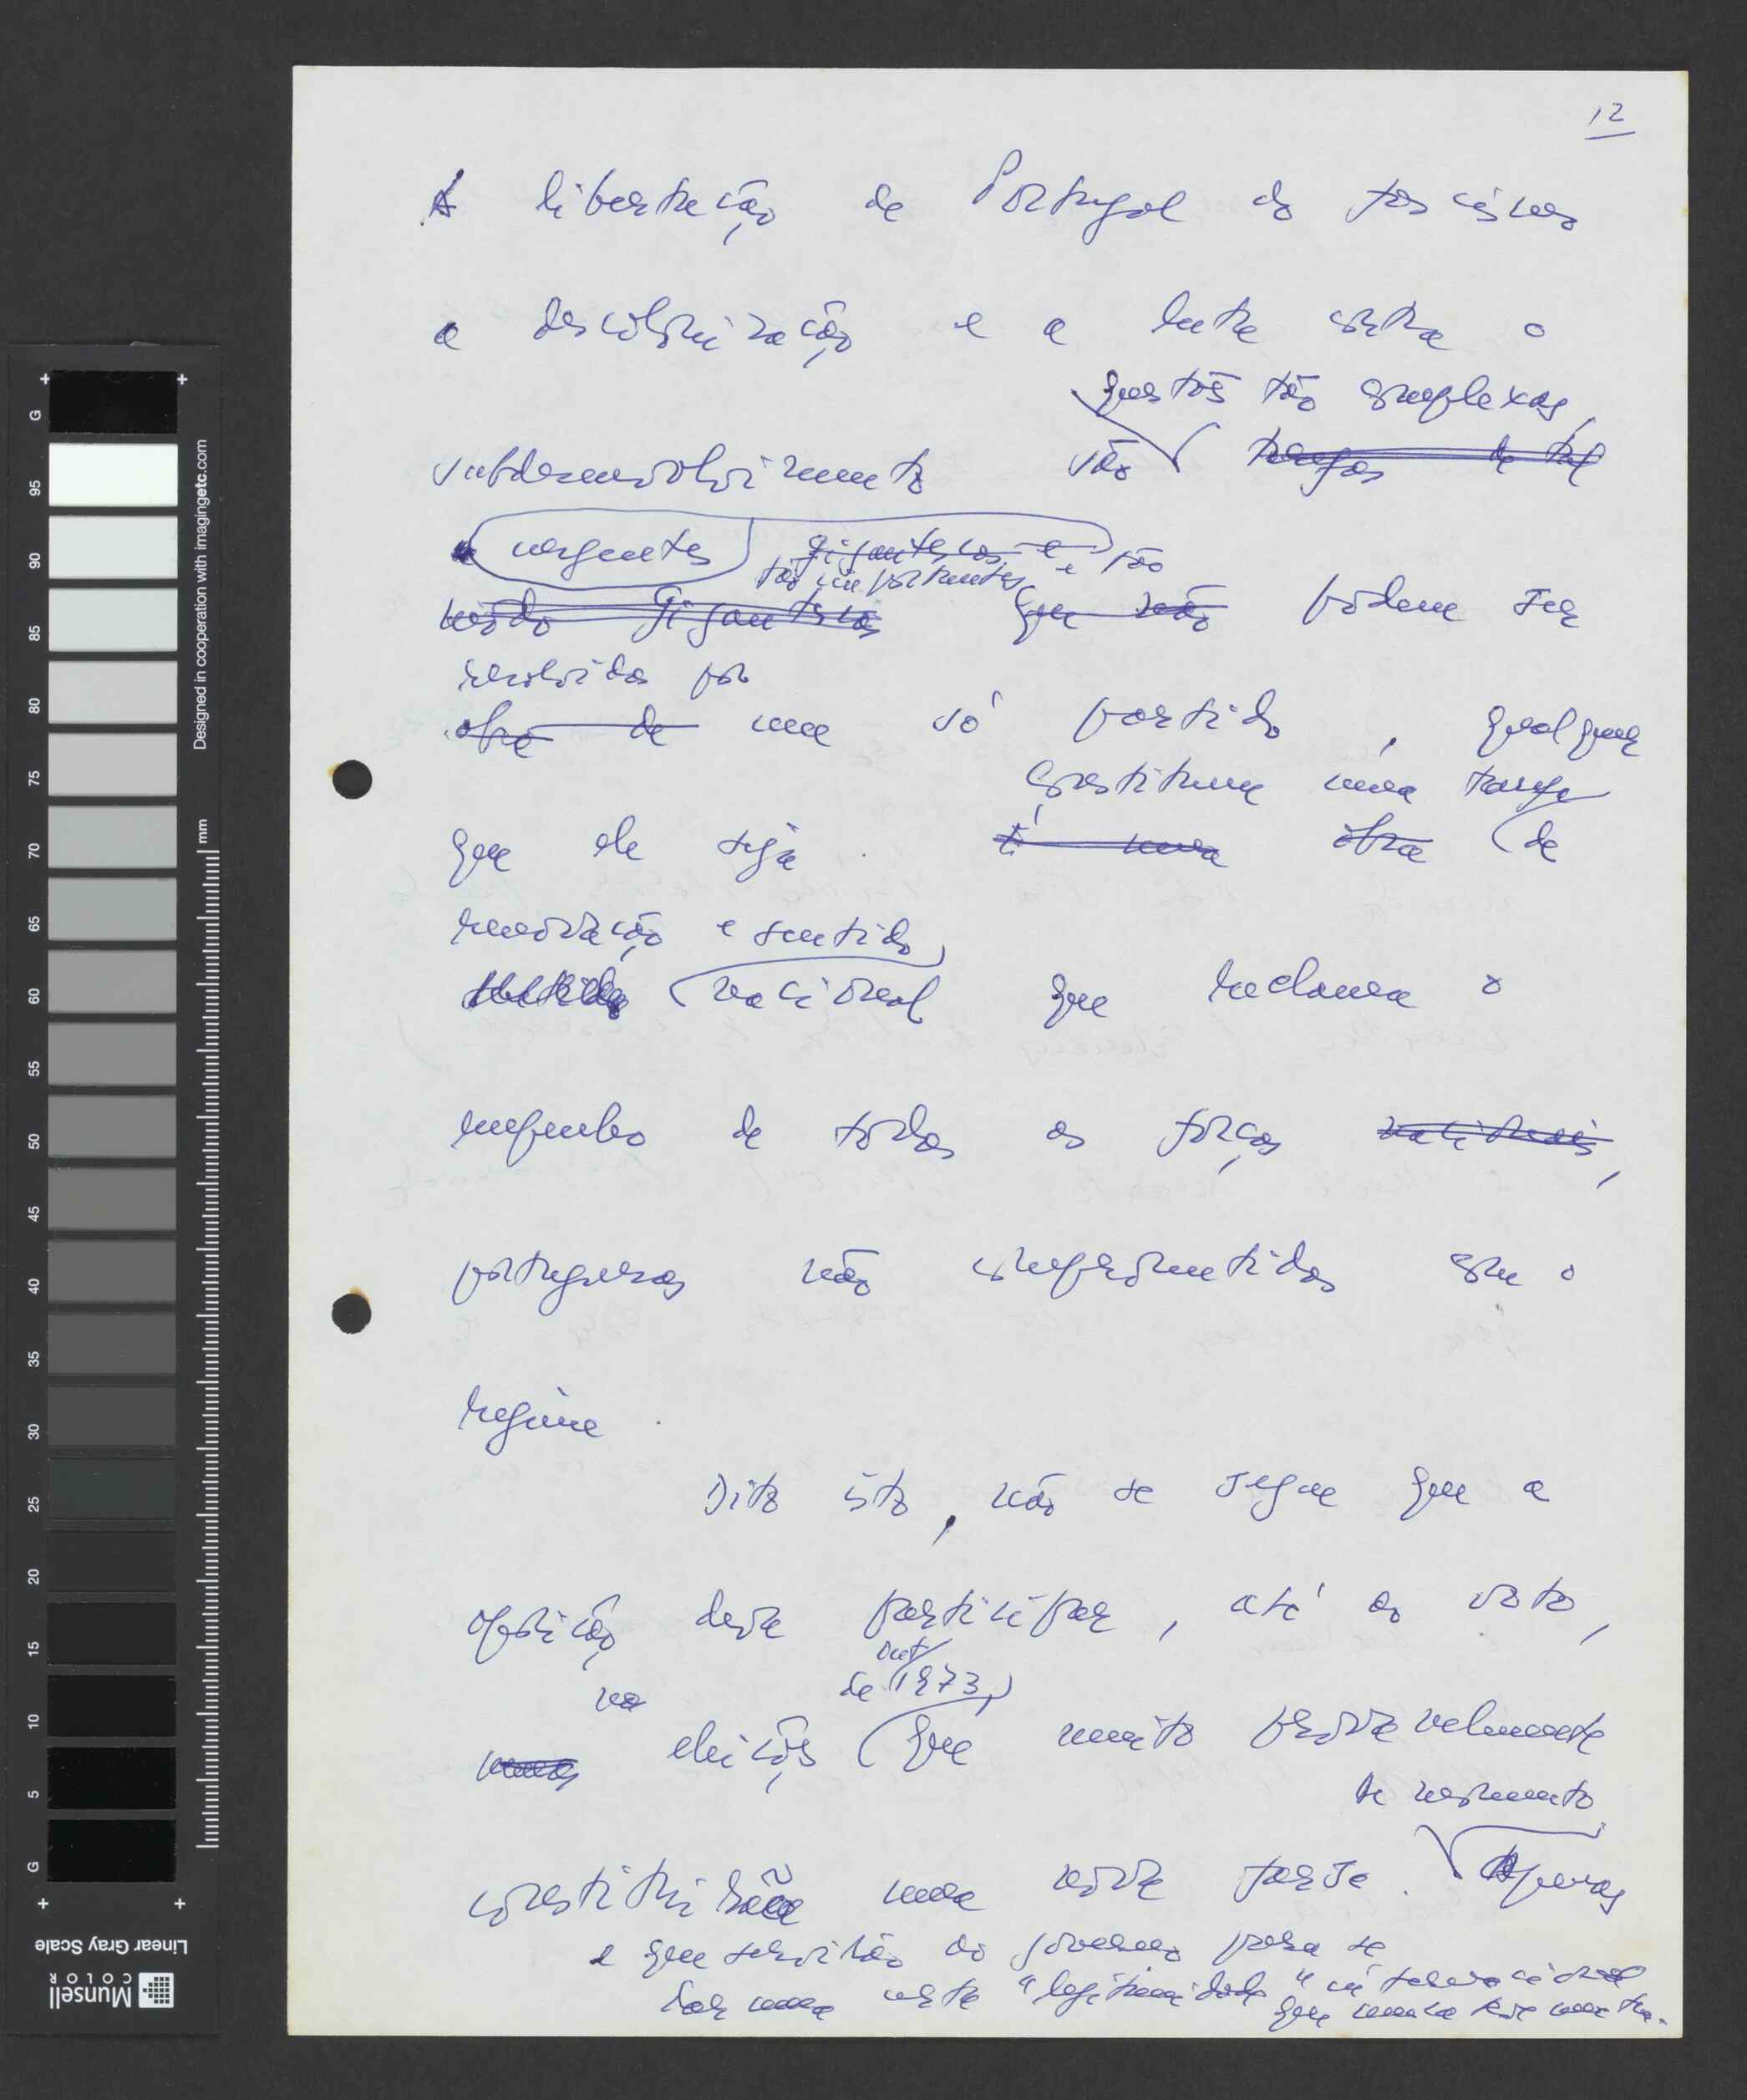 12
A libertação de Portugal do fascismo
a descolonização e a luta contra o
questões tão complexas,
subdesenvolvimento são tarefas de tal
urgentes gigantescas e e tão
tão importantes
modo gigantescas que não podem ser
resolvidas por
obra de um só partido, qualquer
Constituem uma tarefa
que ele seja. É uma obra de
renovação e sentido
nacional que reclama o
empenho de todas as forças nacionais,
portuguesas não comprometidas com o
regime.
Dito isto, não se segue que a
oposição deva participar, até ao voto,
na de Out/ 1973,
umas eleições que muito provavelmente
de momento
constituirão uma nova farsa. Apenas
e que servirão ao governo para se
dar uma certa "legitimidade" internacional
que nunca teve
G 95 90 85 80 75 70 65 60 55 50 45 40 35 30 25 20 15 10 5 G
mm
Designed in cooperation with imagingetc.com
Linear Gray Scale
Munsell
COLOR